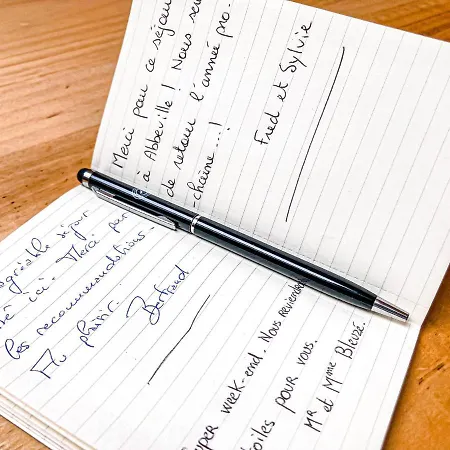 Merci pour ce séjour
à Abbeville ! Nous
de retour l'année pro-
-chaine...!
Fred et Sylvie
agréable séjour
ici. Merci par
les recommandations.
Au plaisir.
Bertrand
week-end. Nous
étoiles pour vous.
Mr et Mme Bleuzé.